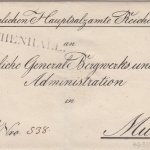 lichen Hauptsalzamte Reiche
CHENHALL.
an
liche General Bergwerks und
Administration
in
No. 538
Mü